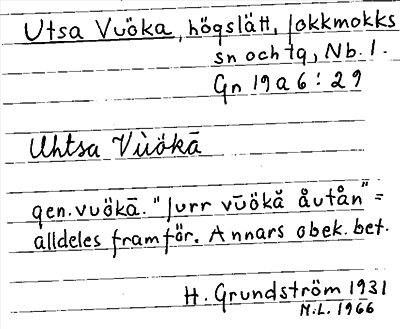 Utsa Vuöka, högslätt, Jokkmokks
sn och tg, Nb. l.
Gn 19 a 6 : 29
Uhtsa Vùökā
gen. vuökā. "Jurr vūökǎ åutån" =
alldeles framför. Annars obek. bet.
H. Grundström 1931
N.L. 1966